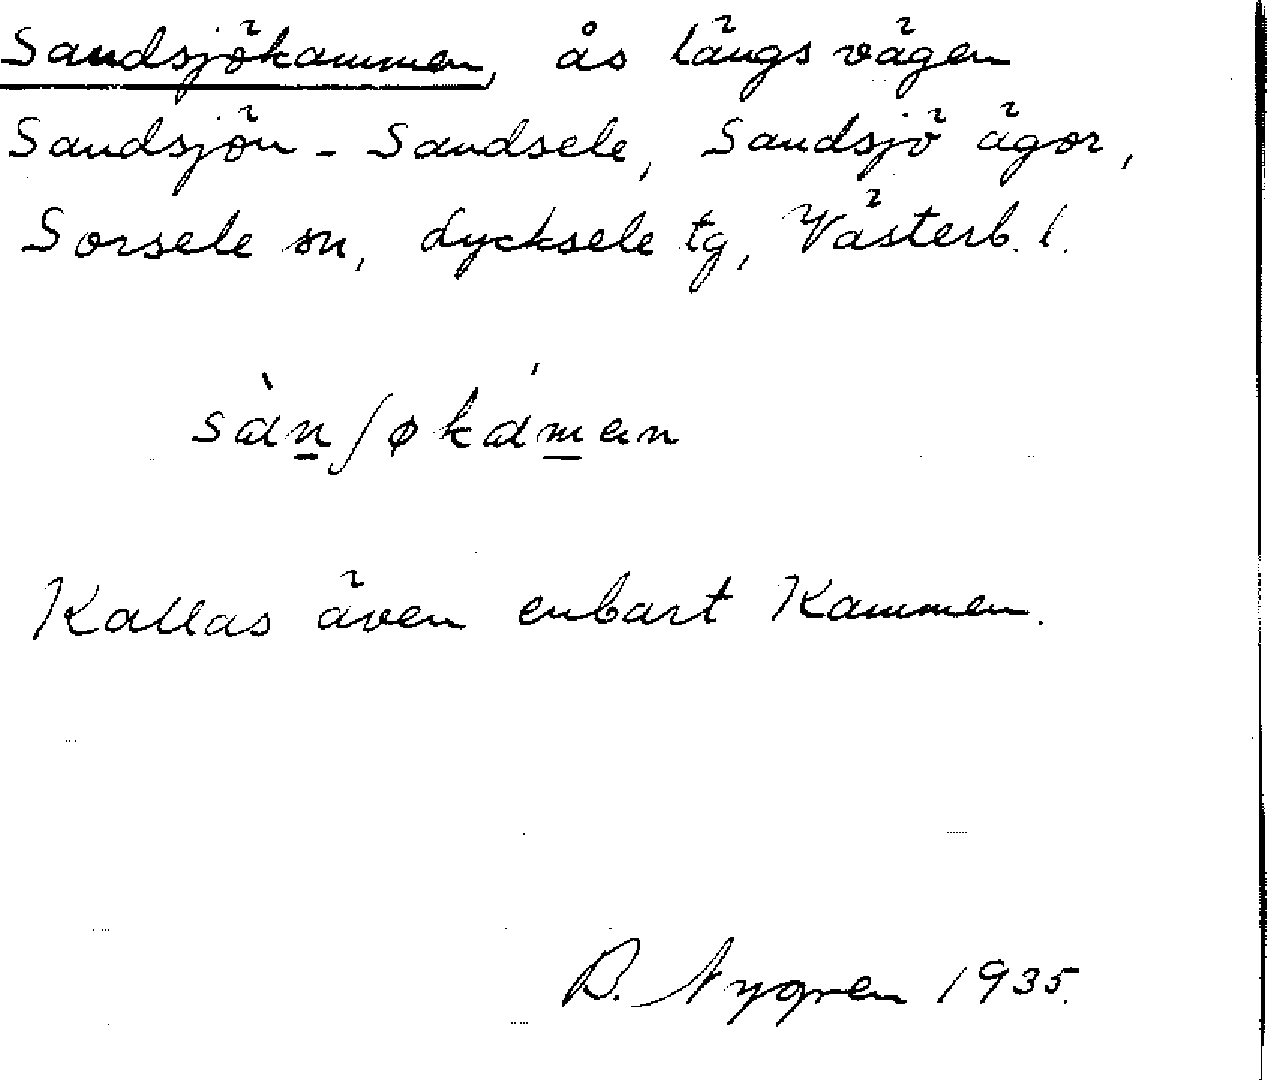 Sandsjökammen, ås längs vägen
Sandsjön - Sandsele, Sandsjö ägor,
Sorsele sn, Lycksele tg, Västerb. l.
sàn̲ʃøkàm̲en
Kallas även enbart Kammen.
B. Nygren 1935.